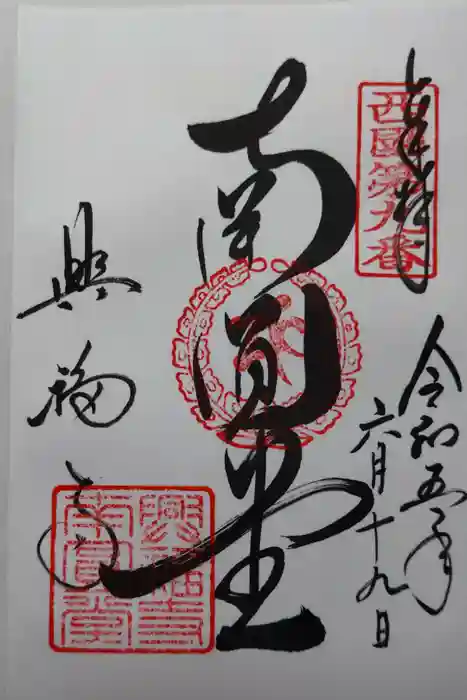 奉拝
西國第九番
令和五年
六月十九日
南円堂
興福寺
興福寺
南円堂